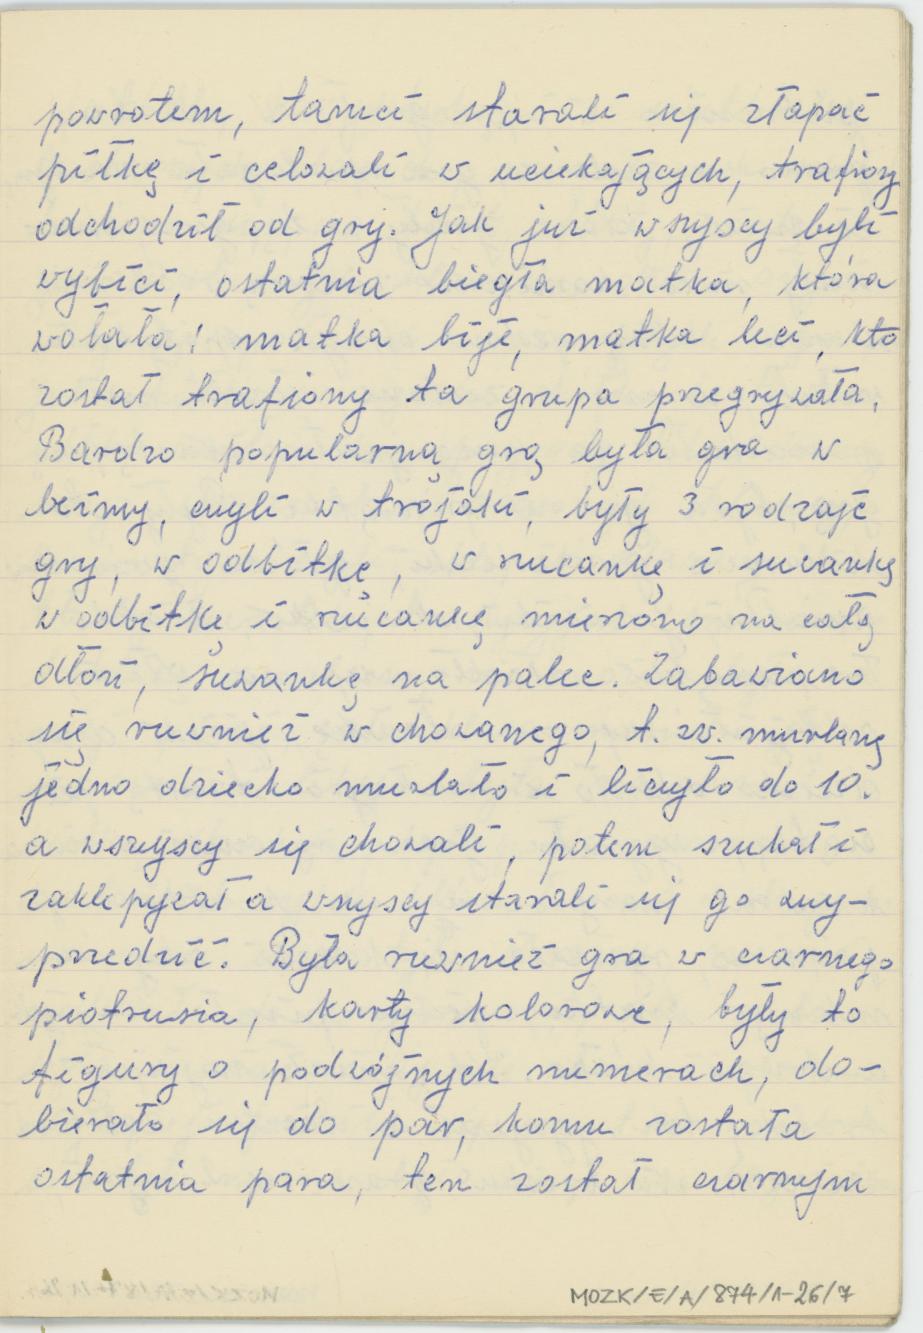 powrotem, tamci starali się złapać
piłkę i celowali w uciekających, trafiony
odchodził od gry. Jak już wszyscy byli
wybici, ostatnia biegła matka, która
wołała: matka bije, matka leci, kto
został trafiony ta grupa przegrywała.
Bardzo popularną grą była gra w
beimy, czyli w trojaki, były 3 rodzaje
gry, w odbitkę, w rzucankę i suwankę
w odbitkę i rzucankę mierzono na całą
dłoń, suwankę na palec. Zabawiano
się ruwnież w chowanego, t. zw. murlanę
jedno dziecko murlało i liczyło do 10.
a wszyscy się chowali, potem szukał i
zaklepywał a wszyscy starali się go wy-
przedzić. Była ruwnież gra w czarnego
piotrusia, karty kolorowe, były to
figury o podwójnych numerach, do-
bierało się do par, komu została
ostatnia para, ten został czarnym
MOZK/E/A/874/1-26/7